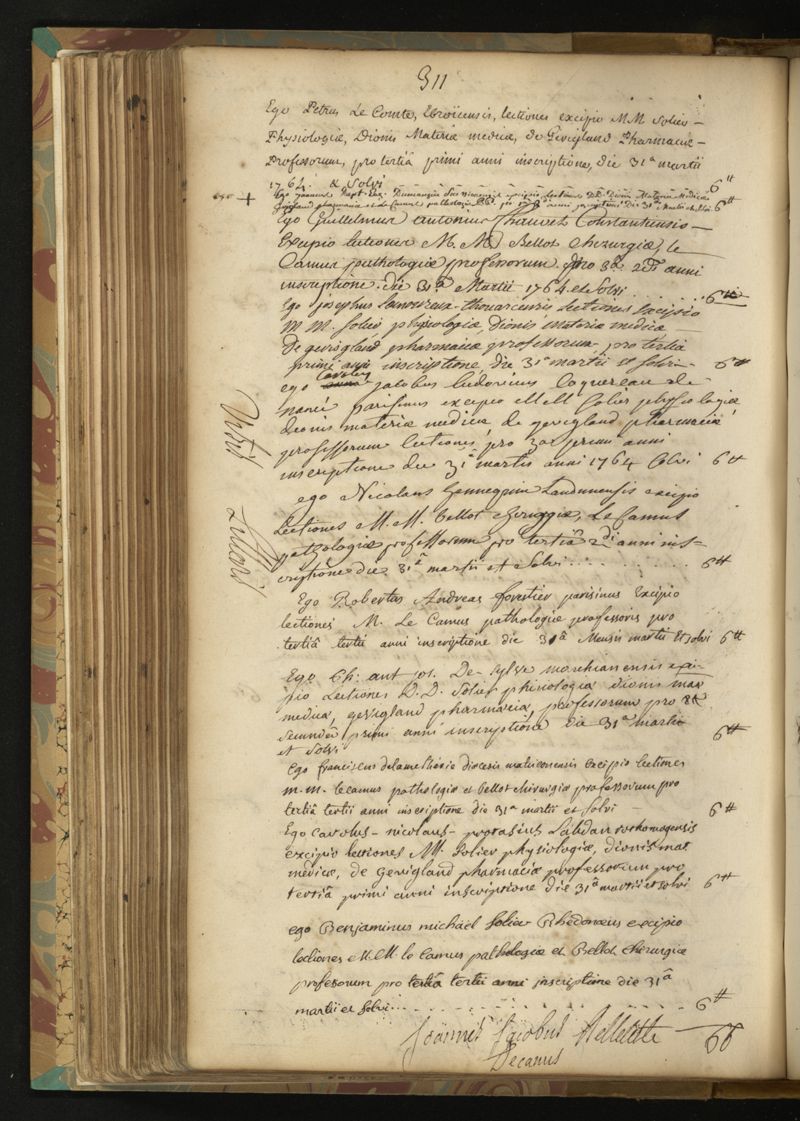 311
Ego Petrus Le Comte, Ebroïcensis, lectiones excipio MM Solier
Physiologiæ, Dionis Materiæ medicæ, de Gevigland Pharmaciæ
Professorum, pro tertiâ primi anni inscriptione, die 31ª martii
1764. & Solvi 6#
Ego Bapt. excipio lectiones DD. Dionis Materiæ Medicæ
Gevigland pharmaciæ et le Camus pathologiæ pro anni die 31ª Martii et solvi 6#
Ego Guillelmus antonius Chauvet Constantiensis
Excipio lectiones M. M. Bellot chirurgiæ, le
Camus pathologiæ professorum. pro 3ª 2di anni
inscriptione. die 31ª Martii 1764 et Solvi . . . . . . . 6#
Ego josephus thouarcensis Lectiones Excipio
M M. Solier physiologiæ, Dionis materiæ medicæ
De gevigland pharmaciæ professorum pro tertiâ
primi anni inscriptione die 31ª martii et solvi 6#
ego jacobus ludovicus Coquereau de
parisinus excipio M M Solier physiologiæ
dionis materiæ medicæ de gevigland pharmaciæ
professorum lectiones pro 3ª primi anni
inscriptione die 31ª martii anni 1764 Solvi 6#
ego Nicolaus Hennequin Laudunensis excipio
Lectiones M. M. bellot chirurgiæ, Le Camus
pathologiæ professorum pro tertiâ 2di anni ins-
criptione die 31ª martii et Solvi . . . . . . . . 6#
Ego Robertus Andreas forestier parisinus Excipio
lectiones M. Le Camus pathologiæ professoris pro
tertiâ tertii anni inscriptione die 31ª Mensis martii et solvi 6#
Ego Ch: ant jos. De-sylve marchianensis exci-
pio Lectiones D.D. Solier phisiologiæ dionis mat
medicæ, gevigland pharmaciæ, professorum pro
primi anni inscriptione die 31ª martii
et Solvi 6#
Ego franciscus delamétherie diocesis matisconensis Excipio lectiones
m.m. lecamus pathologiæ et bellot chirurgiæ professorum pro
tertiâ tertii anni inscriptione die 31ª martii et solvi 6#
Ego carolus-nicolaus-protasius rothomagensis
excipio lectiones MM. Solier physiologiæ, dionis mat
medicæ, de Gevigland pharmaciæ professorum pro
tertiâ primi anni inscriptione die 31ª martii et solvi 6#
ego Benjaminus michael Solier Rhedonæus excipio
lectiones M.M. le Camus pathologiæ et Bellot chirurgiæ
professorum pro tertiâ tertii anni inscriptione die 31ª
martii et Solvi . . . . . . . . . . 6#
Joannes Jacobus Belleteste 66
Decanus